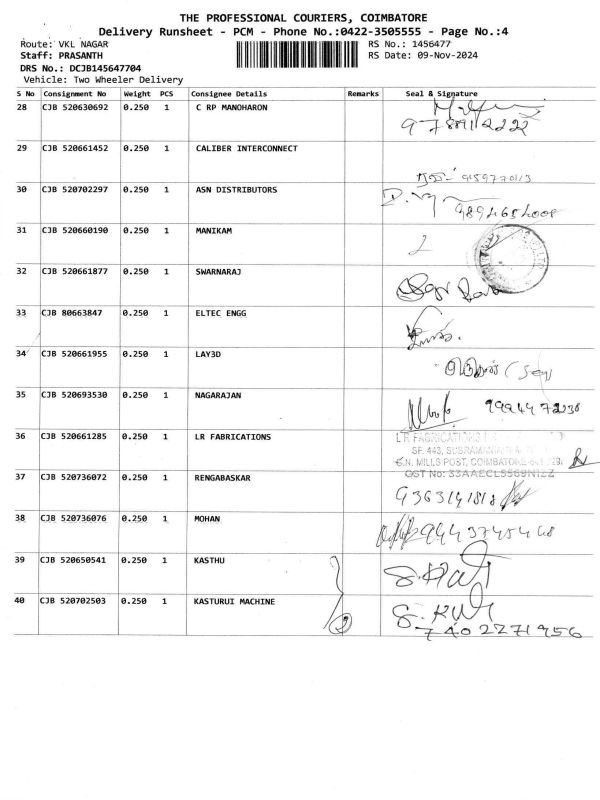 THE PROFESSIONAL COURIERS, COIMBATORE
Delivery Runsheet - PCM - Phone No.:0422-3505555 - Page No.:4
Route: VKL NAGAR RS No.: 1456477
Staff: PRASANTH RS Date: 09-Nov-2024
DRS No.: DCJB145647704
Vehicle: Two Wheeler Delivery
S No Consignment No Weight PCS Consignee Details Remarks Seal & Signature
28 CJB 520630692 0.250 1 C RP MANOHARON
29 CJB 520661452 0.250 1 CALIBER INTERCONNECT
30 CJB 520702297 0.250 1 ASN DISTRIBUTORS
9894654008
31 CJB 520660190 0.250 1 MANIKAM
32 CJB 520661877 0.250 1 SWARNARAJ
33 CJB 80663847 0.250 1 ELTEC ENGG
34 CJB 520661955 0.250 1 LAY3D
35 CJB 520693530 0.250 1 NAGARAJAN
36 CJB 520661285 0.250 1 LR FABRICATIONS
LR FABRICATIONS
SF. 443,
S.N. MILLS POST, COIMBATORE
GST No: 33AAECL5569N1ZZ
37 CJB 520736072 0.250 1 RENGABASKAR
9363141818
38 CJB 520736076 0.250 1 MOHAN
39 CJB 520650541 0.250 1 KASTHU
40 CJB 520702503 0.250 1 KASTURUI MACHINE
2
7402271956